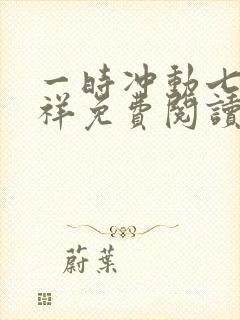 一時冲動七
祥免費閱讀
蔚葉